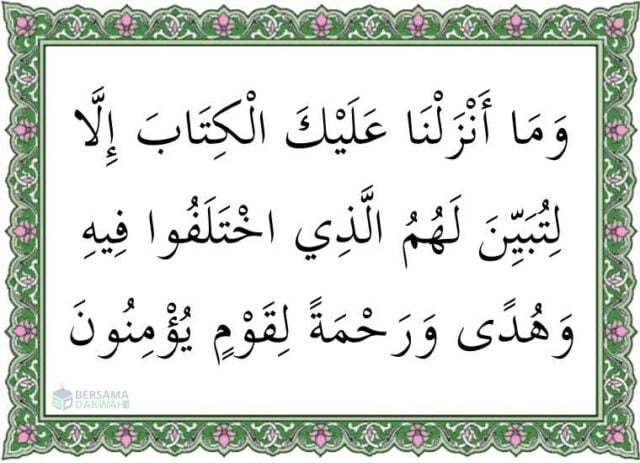 وَمَا أَنْزَلْنَا عَلَيْكَ الْكِتَابَ إِلَّا
لِتُبَيِّنَ لَهُمُ الَّذِي اخْتَلَفُوا فِيهِ
وَهُدًى وَرَحْمَةً لِقَوْمٍ يُؤْمِنُونَ
BERSAMA
DAKWAH